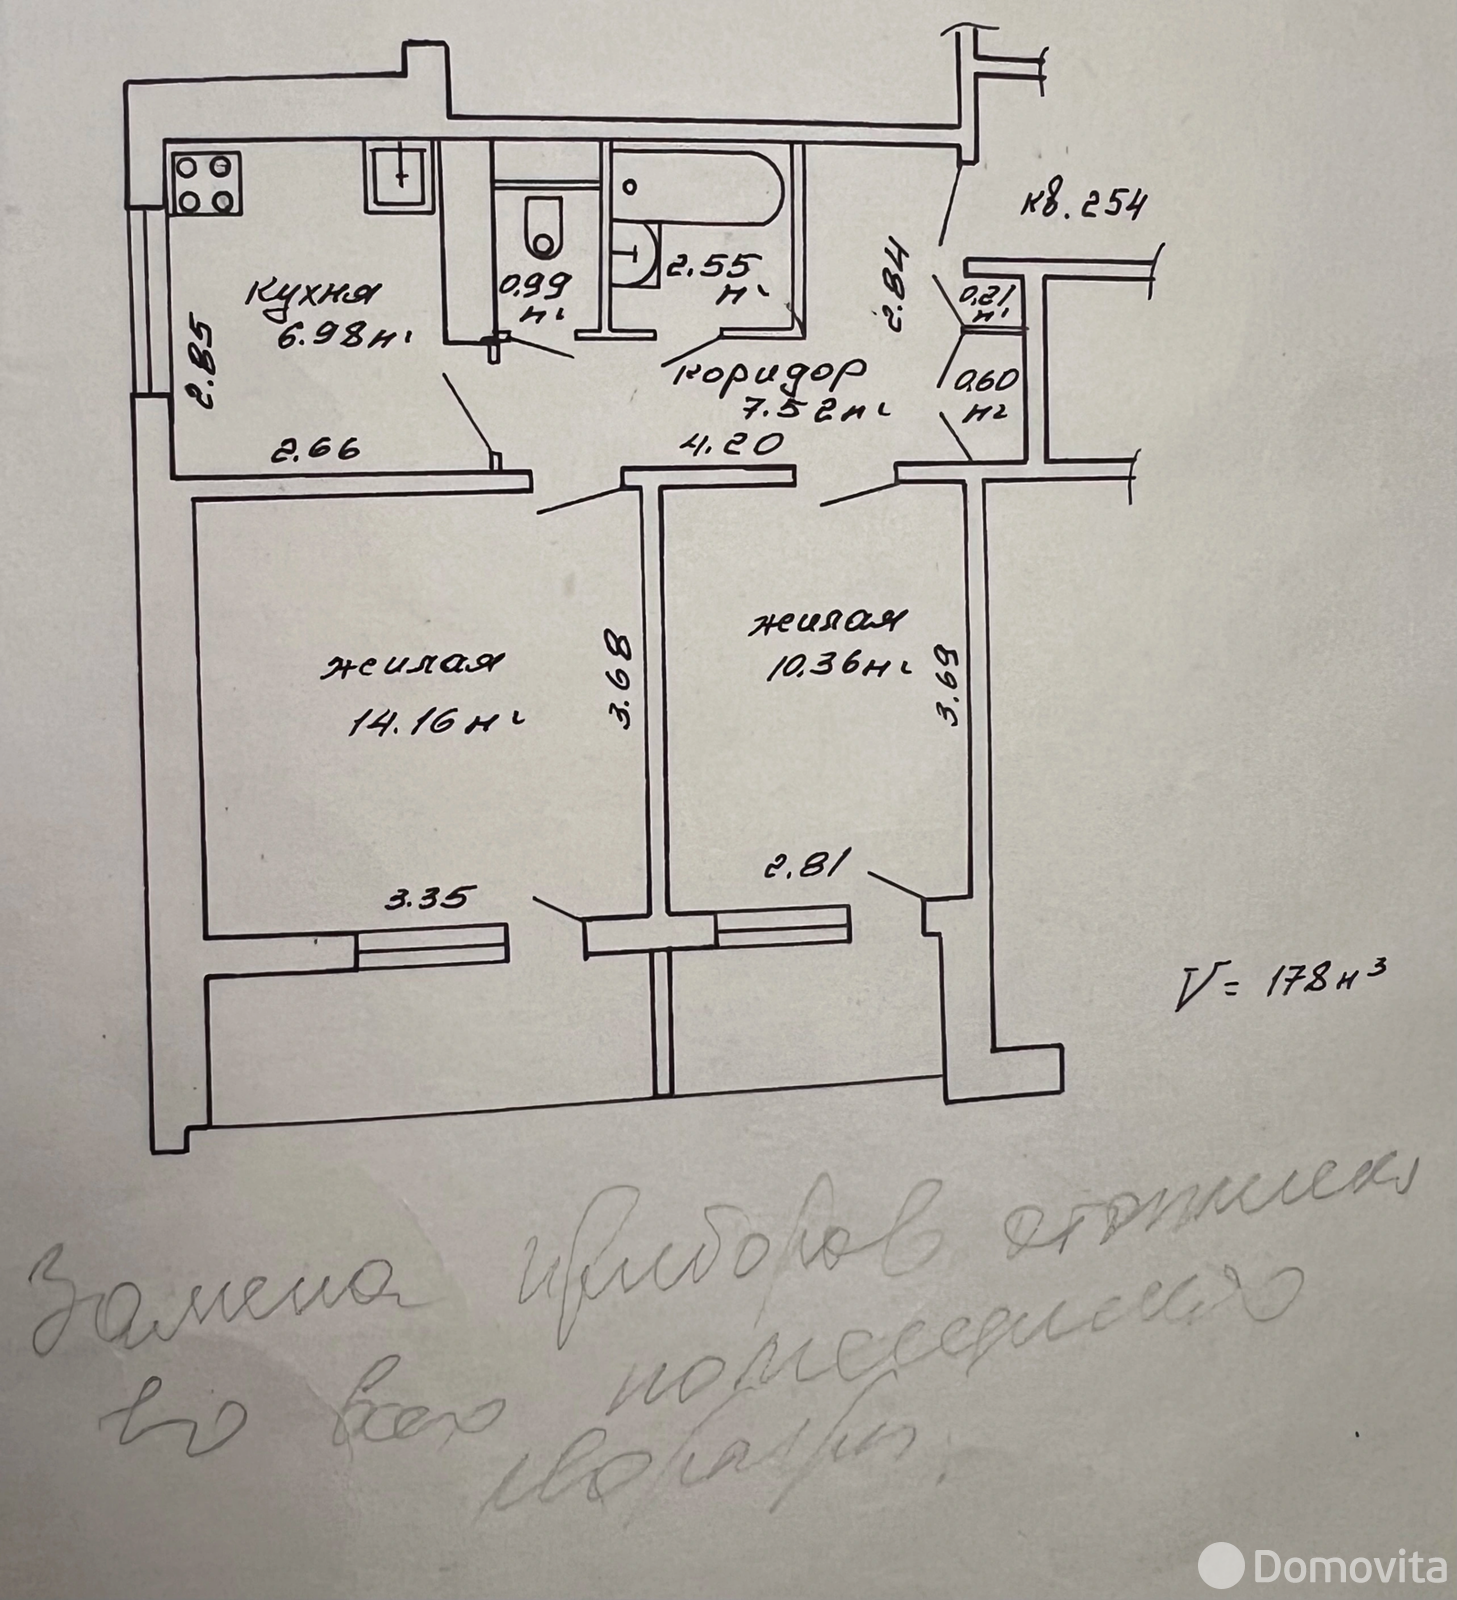 кв. 254
Кухня
6.98 м²
2.85
2.66
0.99
м²
2.55
м²
2.84
0.21
м²
0.60
м²
коридор
7.52 м²
4.20
жилая
14.16 м²
3.68
3.35
жилая
10.36 м²
3.69
2.81
V = 178 м³
Замена приборов
во всех помещениях
квартиры.
Domovita